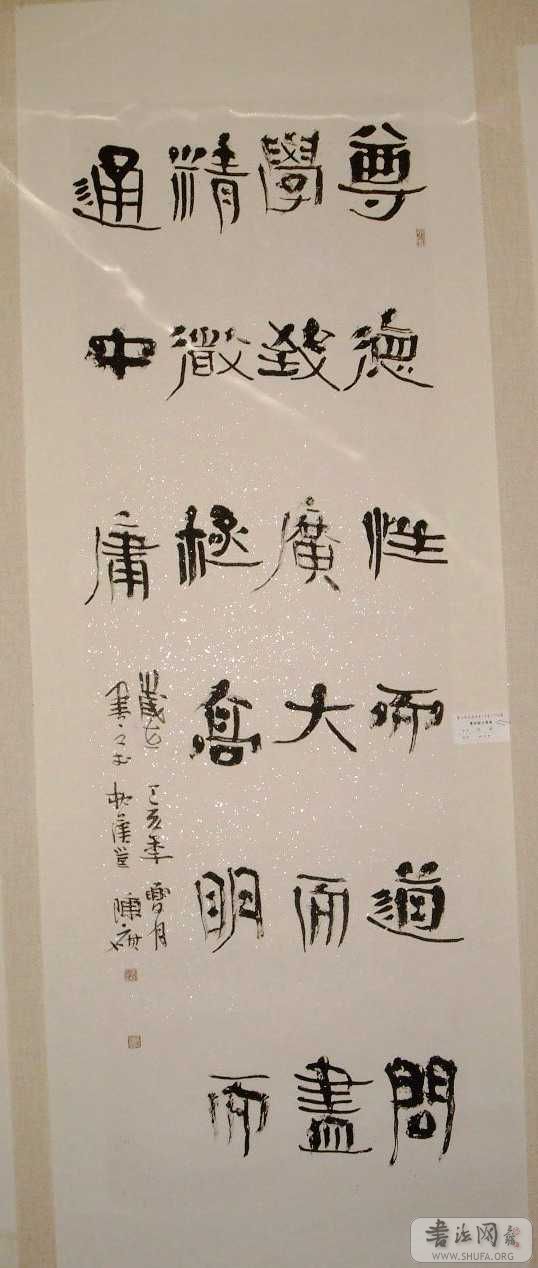 尊德性而道問
學致廣大而盡
精微極高明而
通中庸
歲在丁亥年月
書之於堂陳
書法网
WWW.SHUFA.ORG